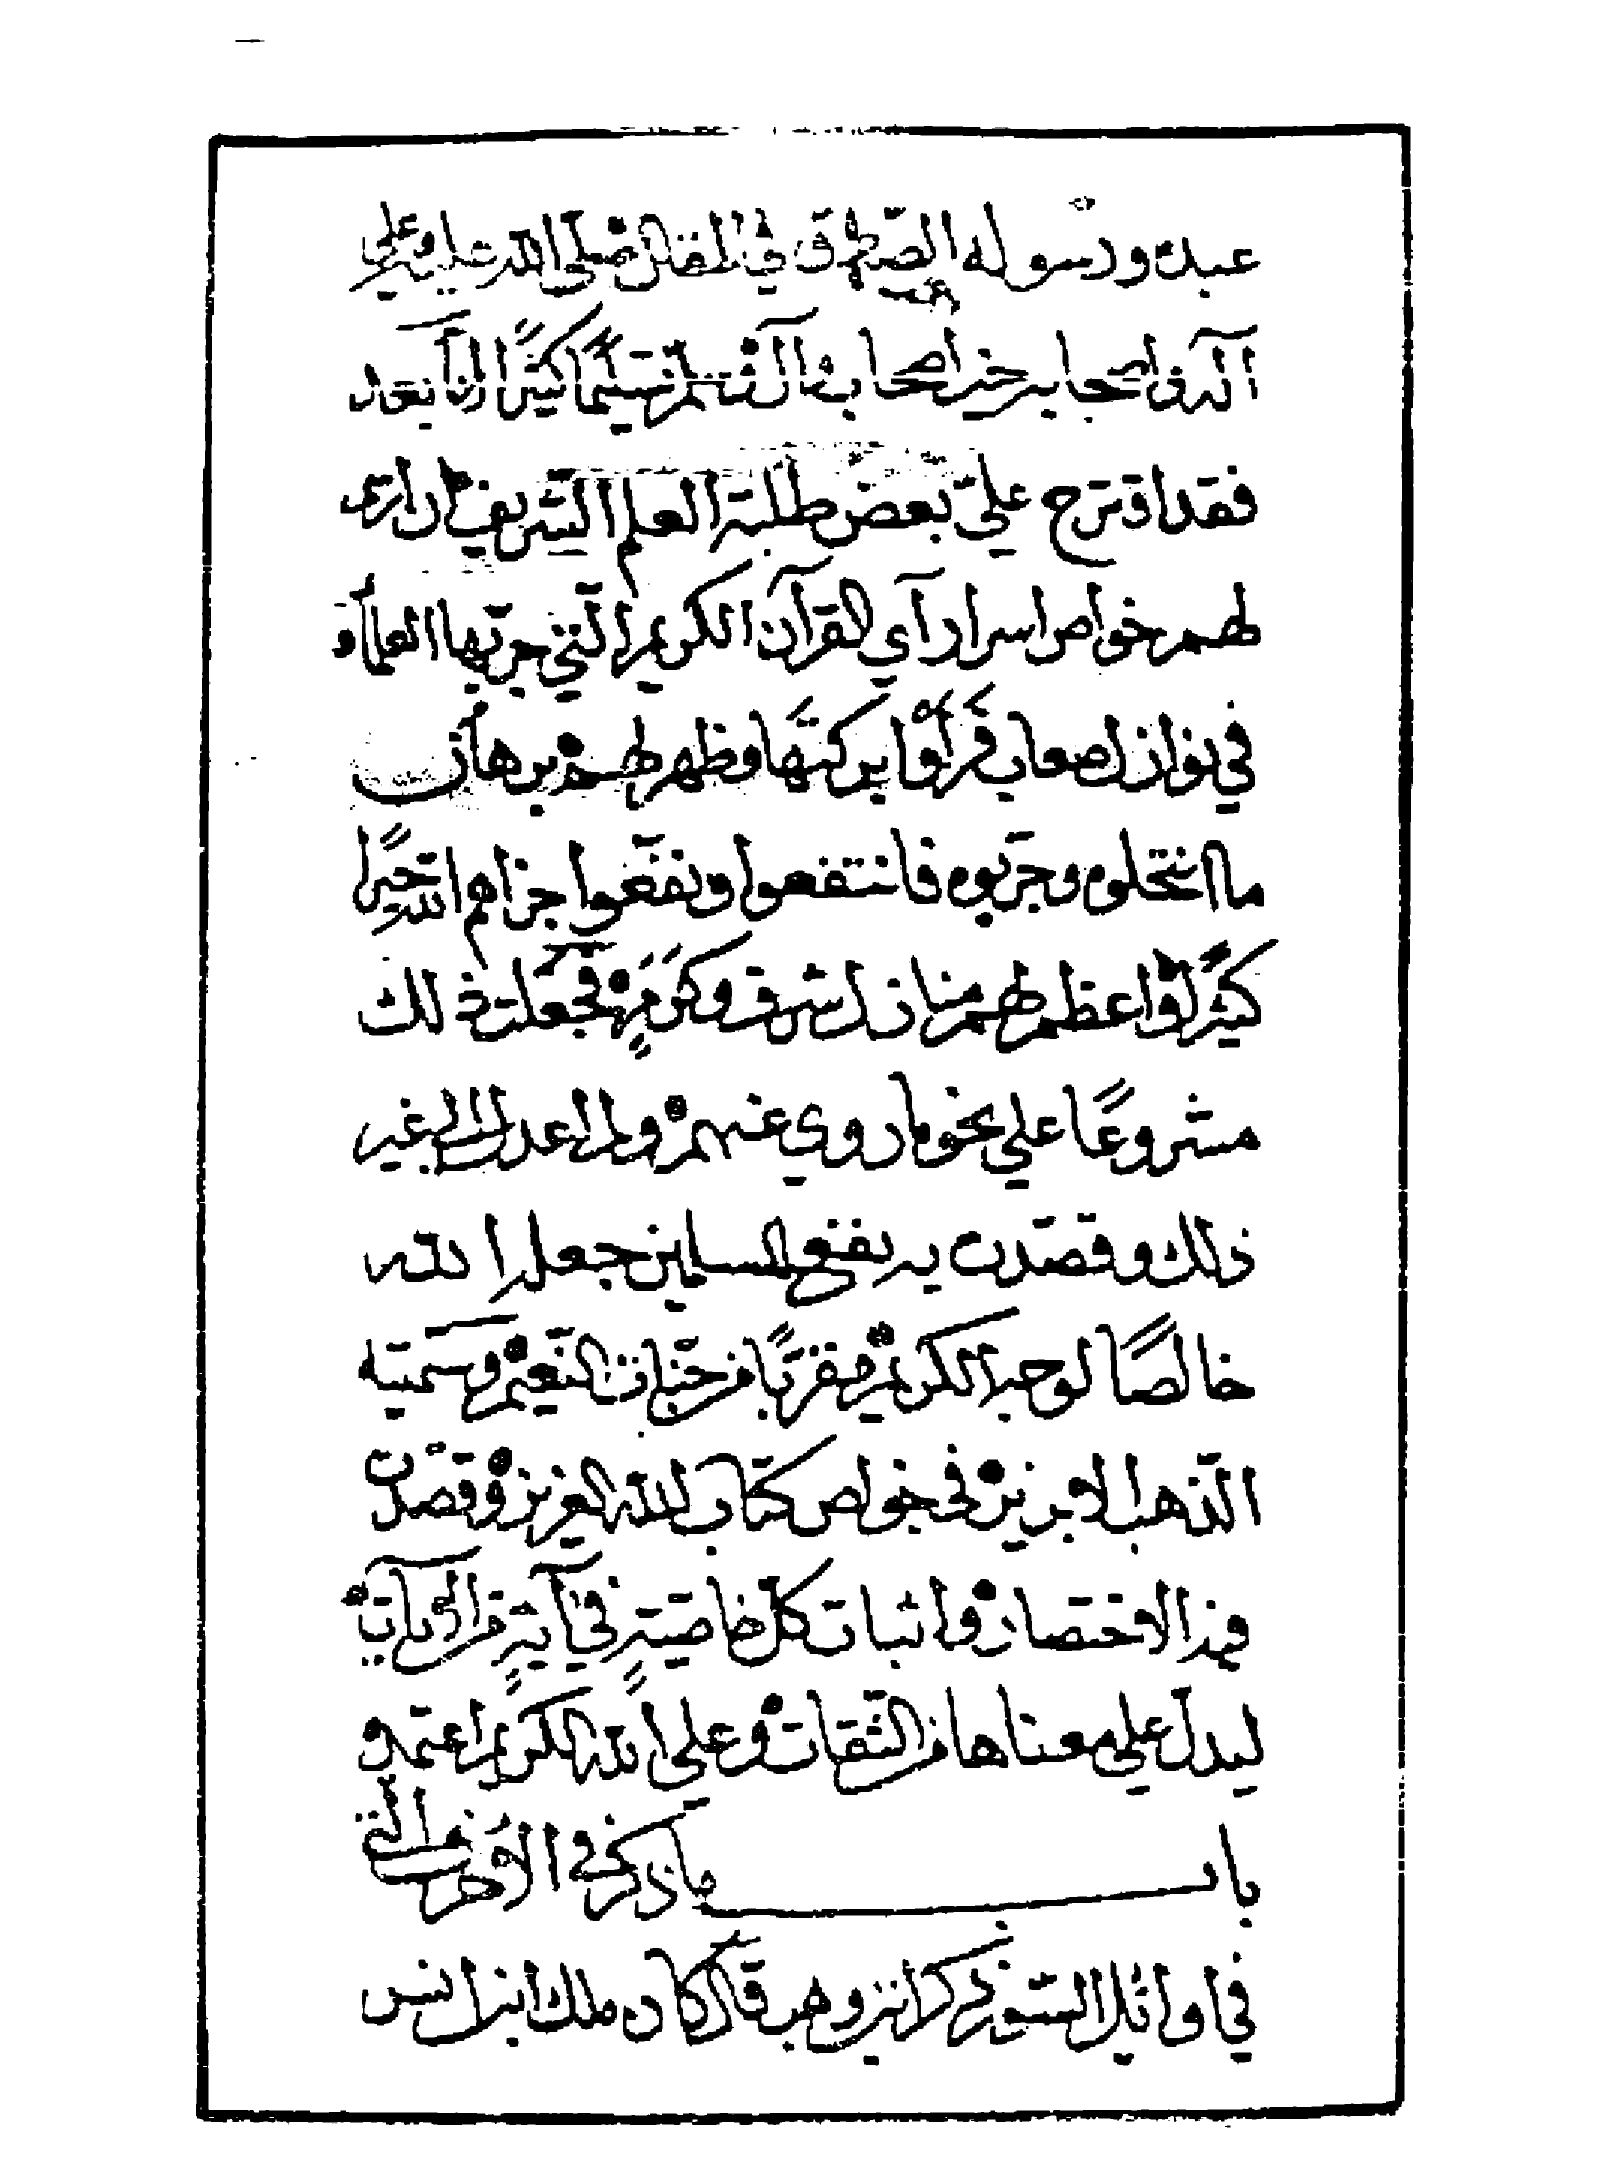 عبده ورسوله الصادق في المقال صلى الله عليه وعلى
آله واصحابه خير اصحاب وآل وسلم تسليما كثيرا اما بعد
فقد اقترح علي بعض طلبة العلم الشريف ان ارتب
لهم خواص اسرار آي القرآن الكريم التي جربها العلمآ و
في نوازل صعاب فرأوا بركتها وظهر لهم برهان
ما انتحلوه وجربوه فانتفعوا ونفعوا جزاهم الله خيرا
كثيرا واعظم لهم منازل شرف وكرم فجعلت ذلك
مشروعا على نحو ما روي عنهم ولم اعدل الى غير
ذلك وقصدت به نفع المسلمين جعله الله
خالصا لوجهه الكريم مقربا من جنات النعيم وسميته
الذهب الابريز في خواص كتاب الله العزيز وقصدت
فيه الاختصار واثبات كل خاصية في آية من الآيات
ليدل على معناها من الثقات وعلى الله الكريم اعتمد و
باب ما ذكر في الاحرف التي
في اوائل السور ذكر ابن وهب قال كان ملك ابن انس